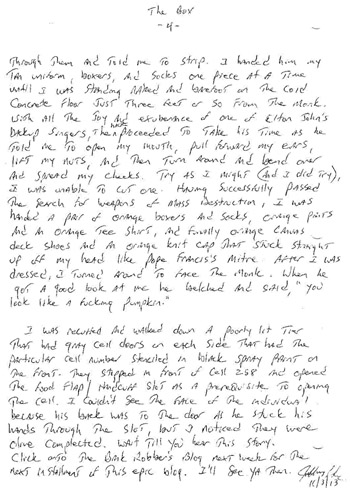 The Box
-4-
Through Them and Told me to strip. I handed him my
Tan uniform, boxers, and socks one piece at a Time
until I was standing naked and barefoot on The Cold
Concrete Floor Just Three feet or so From The Monk.
With all The Joy and exuberance of one of Elton John's
Backup Singers, The Monk proceeded To Take his Time as he
Told me To open my mouth, pull forward my ears,
lift my nuts, and Then Turn around and bend over
and spread my cheeks. Try as I might (and I did Try),
I was unable To cut one. Having Successfully passed
The Search for weapons of mass destruction, I was
handed a pair of orange boxers and Socks, orange pants
and an orange Tee Shirt, and finally orange Canvas
deck shoes and an orange knit cap That stuck straight
up off my head like Pope Francis's Mitre. After I was
dressed, I Turned around To Face The Monk. When he
got a good look at me he belched and said, "You
look like a fucking pumpkin."
I was recuffed and walked down a poorly lit Tier
That had gray cell doors on each side That had The
particular cell number stenciled in black spray paint on
The Front. They stopped in front of Cell 258 and opened
The Food Flap / Handcuff Slot as a prerequisite To opening
The Cell. I Couldn't See The Face of The individual
because his back was To The door as he stuck his
hands Through The Slot, but I noticed They were
olive Complected. Wait Till You hear This Story.
Click onto The Bank Robber's Blog next week for The
next installment of This epic blog. I'll See Ya Then.